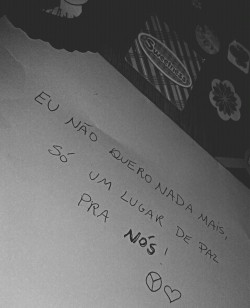 EU NÃO QUERO NADA MAIS,
SÓ UM LUGAR DE PAZ
PRA NÓS!